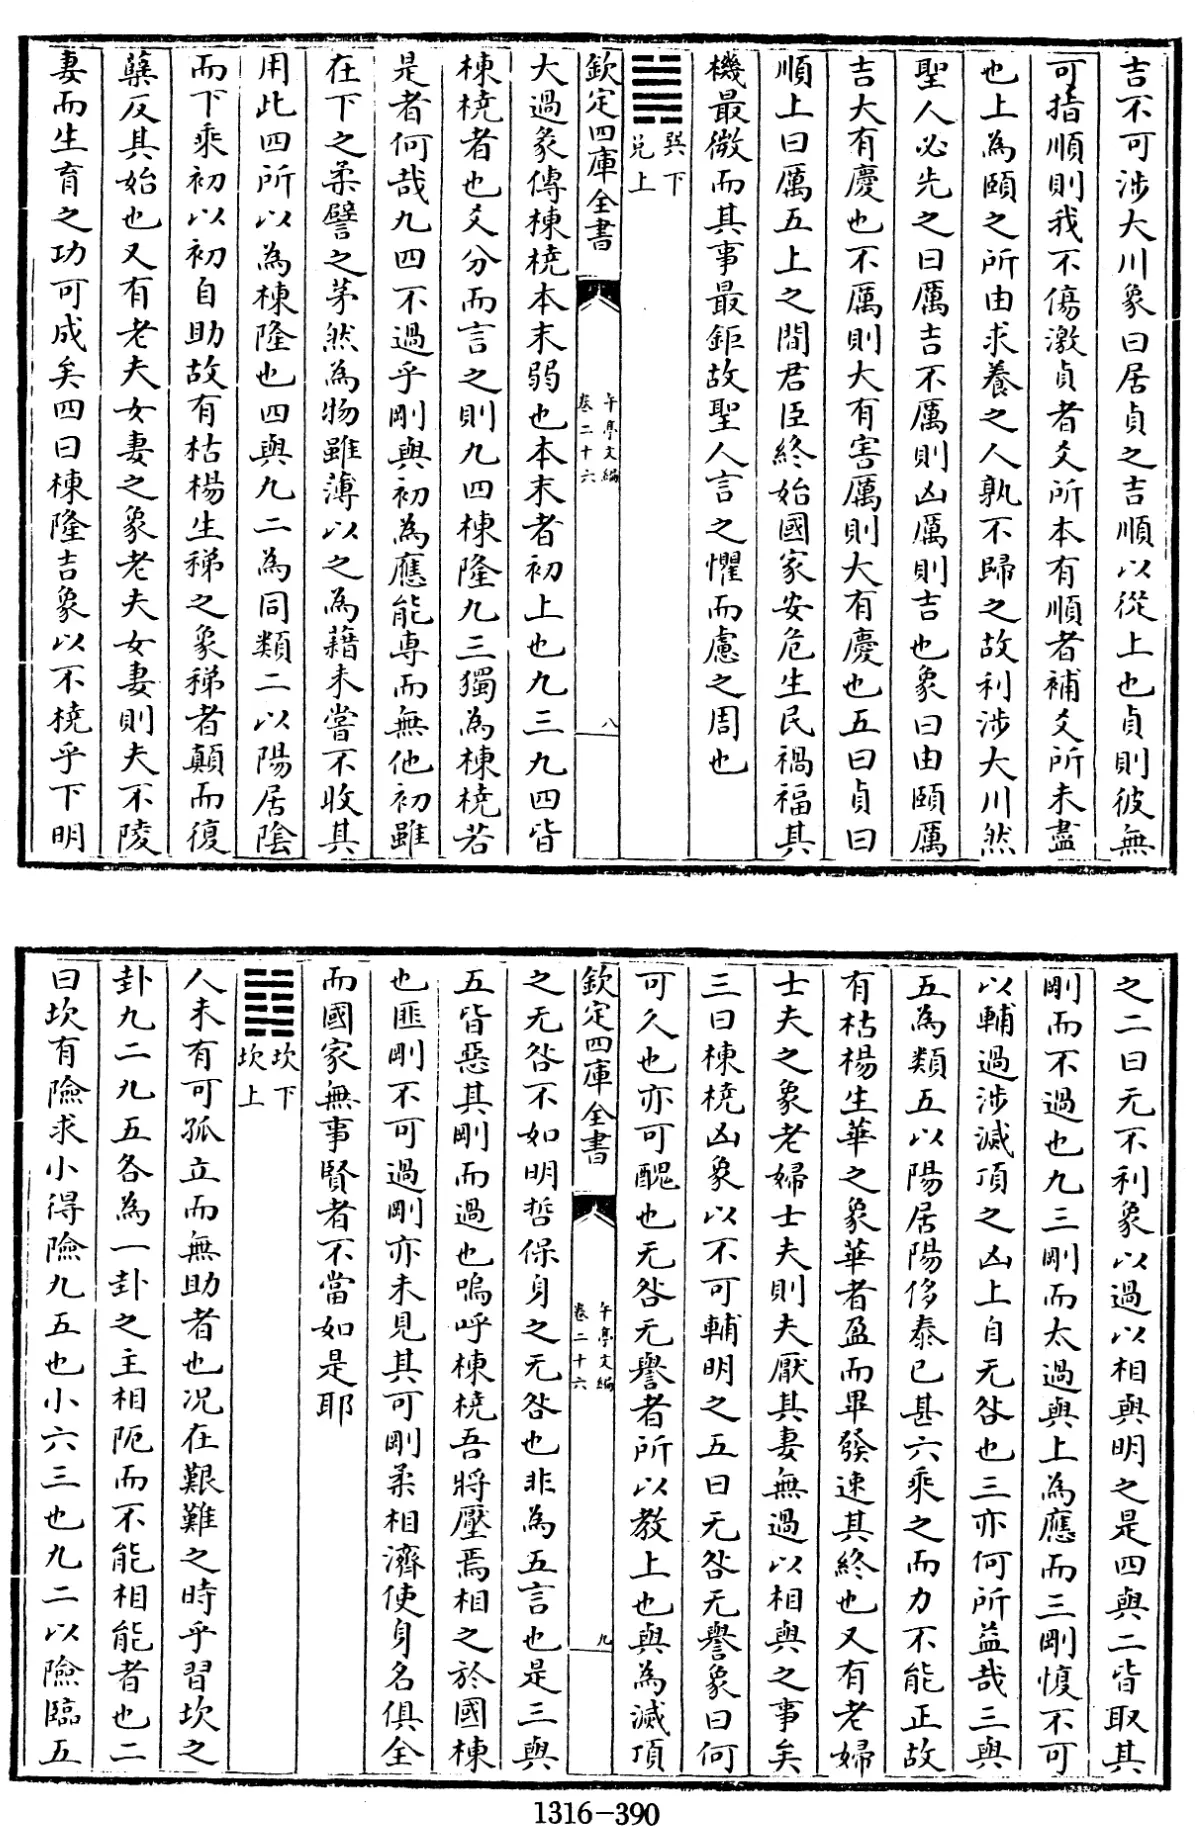 吉不可涉大川象曰居貞之吉順以從上也貞則彼無
可指順則我不傷激貞者爻所本有順者補爻所未盡
也上為頤之所由求養之人孰不歸之故利涉大川然
聖人必先之曰厲吉不厲則凶厲則吉也象曰由頤厲
吉大有慶也不厲則大有害厲則大有慶也五曰貞曰
順上曰厲五上之間君臣終始國家安危生民禍福其
機最微而其事最鉅故聖人言之懼而慮之周也
巽下
兌上
欽定四庫全書
午亭文編
卷二十六
八
大過彖傳棟橈本末弱也本末者初上也九三九四皆
棟橈者也爻分而言之則九四棟隆九三獨為棟橈若
是者何哉九四不過乎剛與初為應能專而無他初雖
在下之柔譬之茅然為物雖薄以之為藉未嘗不收其
用此四所以為棟隆也四與九二為同類二以陽居陰
而下乘初以初自助故有枯楊生稊之象稊者顛而復
蘖反其始也又有老夫女妻之象老夫女妻則夫不陵
妻而生育之功可成矣四曰棟隆吉象以不橈乎下明
之二曰无不利象以過以相與明之是四與二皆取其
剛而不過也九三剛而太過與上為應而三剛愎不可
以輔過涉滅頂之凶上自无咎也三亦何所益哉三與
五為類五以陽居陽侈泰已甚六乘之而力不能正故
有枯楊生華之象華者盈而畢發速其終也又有老婦
士夫之象老婦士夫則夫厭其妻無過以相與之事矣
三曰棟橈凶象以不可輔明之五曰无咎无譽象曰何
可久也亦可醜也无咎无譽者所以教上也與為滅頂
欽定四庫全書
午亭文編
卷二十六
九
之无咎不如明哲保身之无咎也非為五言也是三與
五皆惡其剛而過也嗚呼棟橈吾將壓焉相之於國棟
也匪剛不可過剛亦未見其可剛柔相濟使身名俱全
而國家無事賢者不當如是耶
坎下
坎上
人未有可孤立而無助者也況在艱難之時乎習坎之
卦九二九五各為一卦之主相阨而不能相能者也二
曰坎有險求小得險九五也小六三也九二以險臨五
1316-390